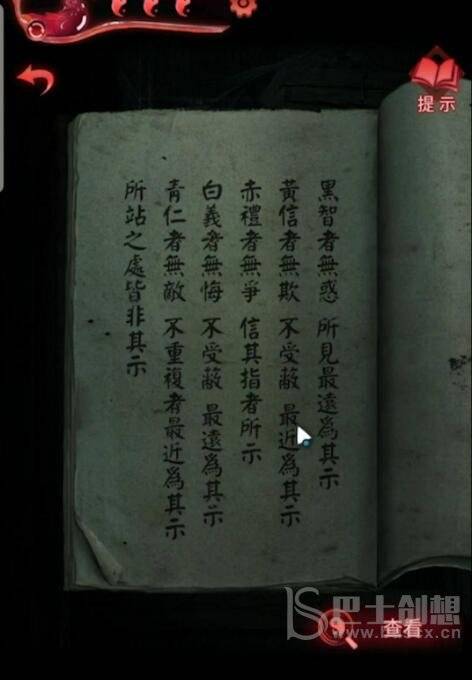 提示
黑智者無惑 所見最遠為其示
黃信者無欺 不受蔽 最近為其示
赤禮者無爭 信其指者所示
白義者無悔 不受蔽 最遠為其示
青仁者無敵 不重複者最近為其示
所站之處皆非其示
巴士创想
www.bscx.cn
查看